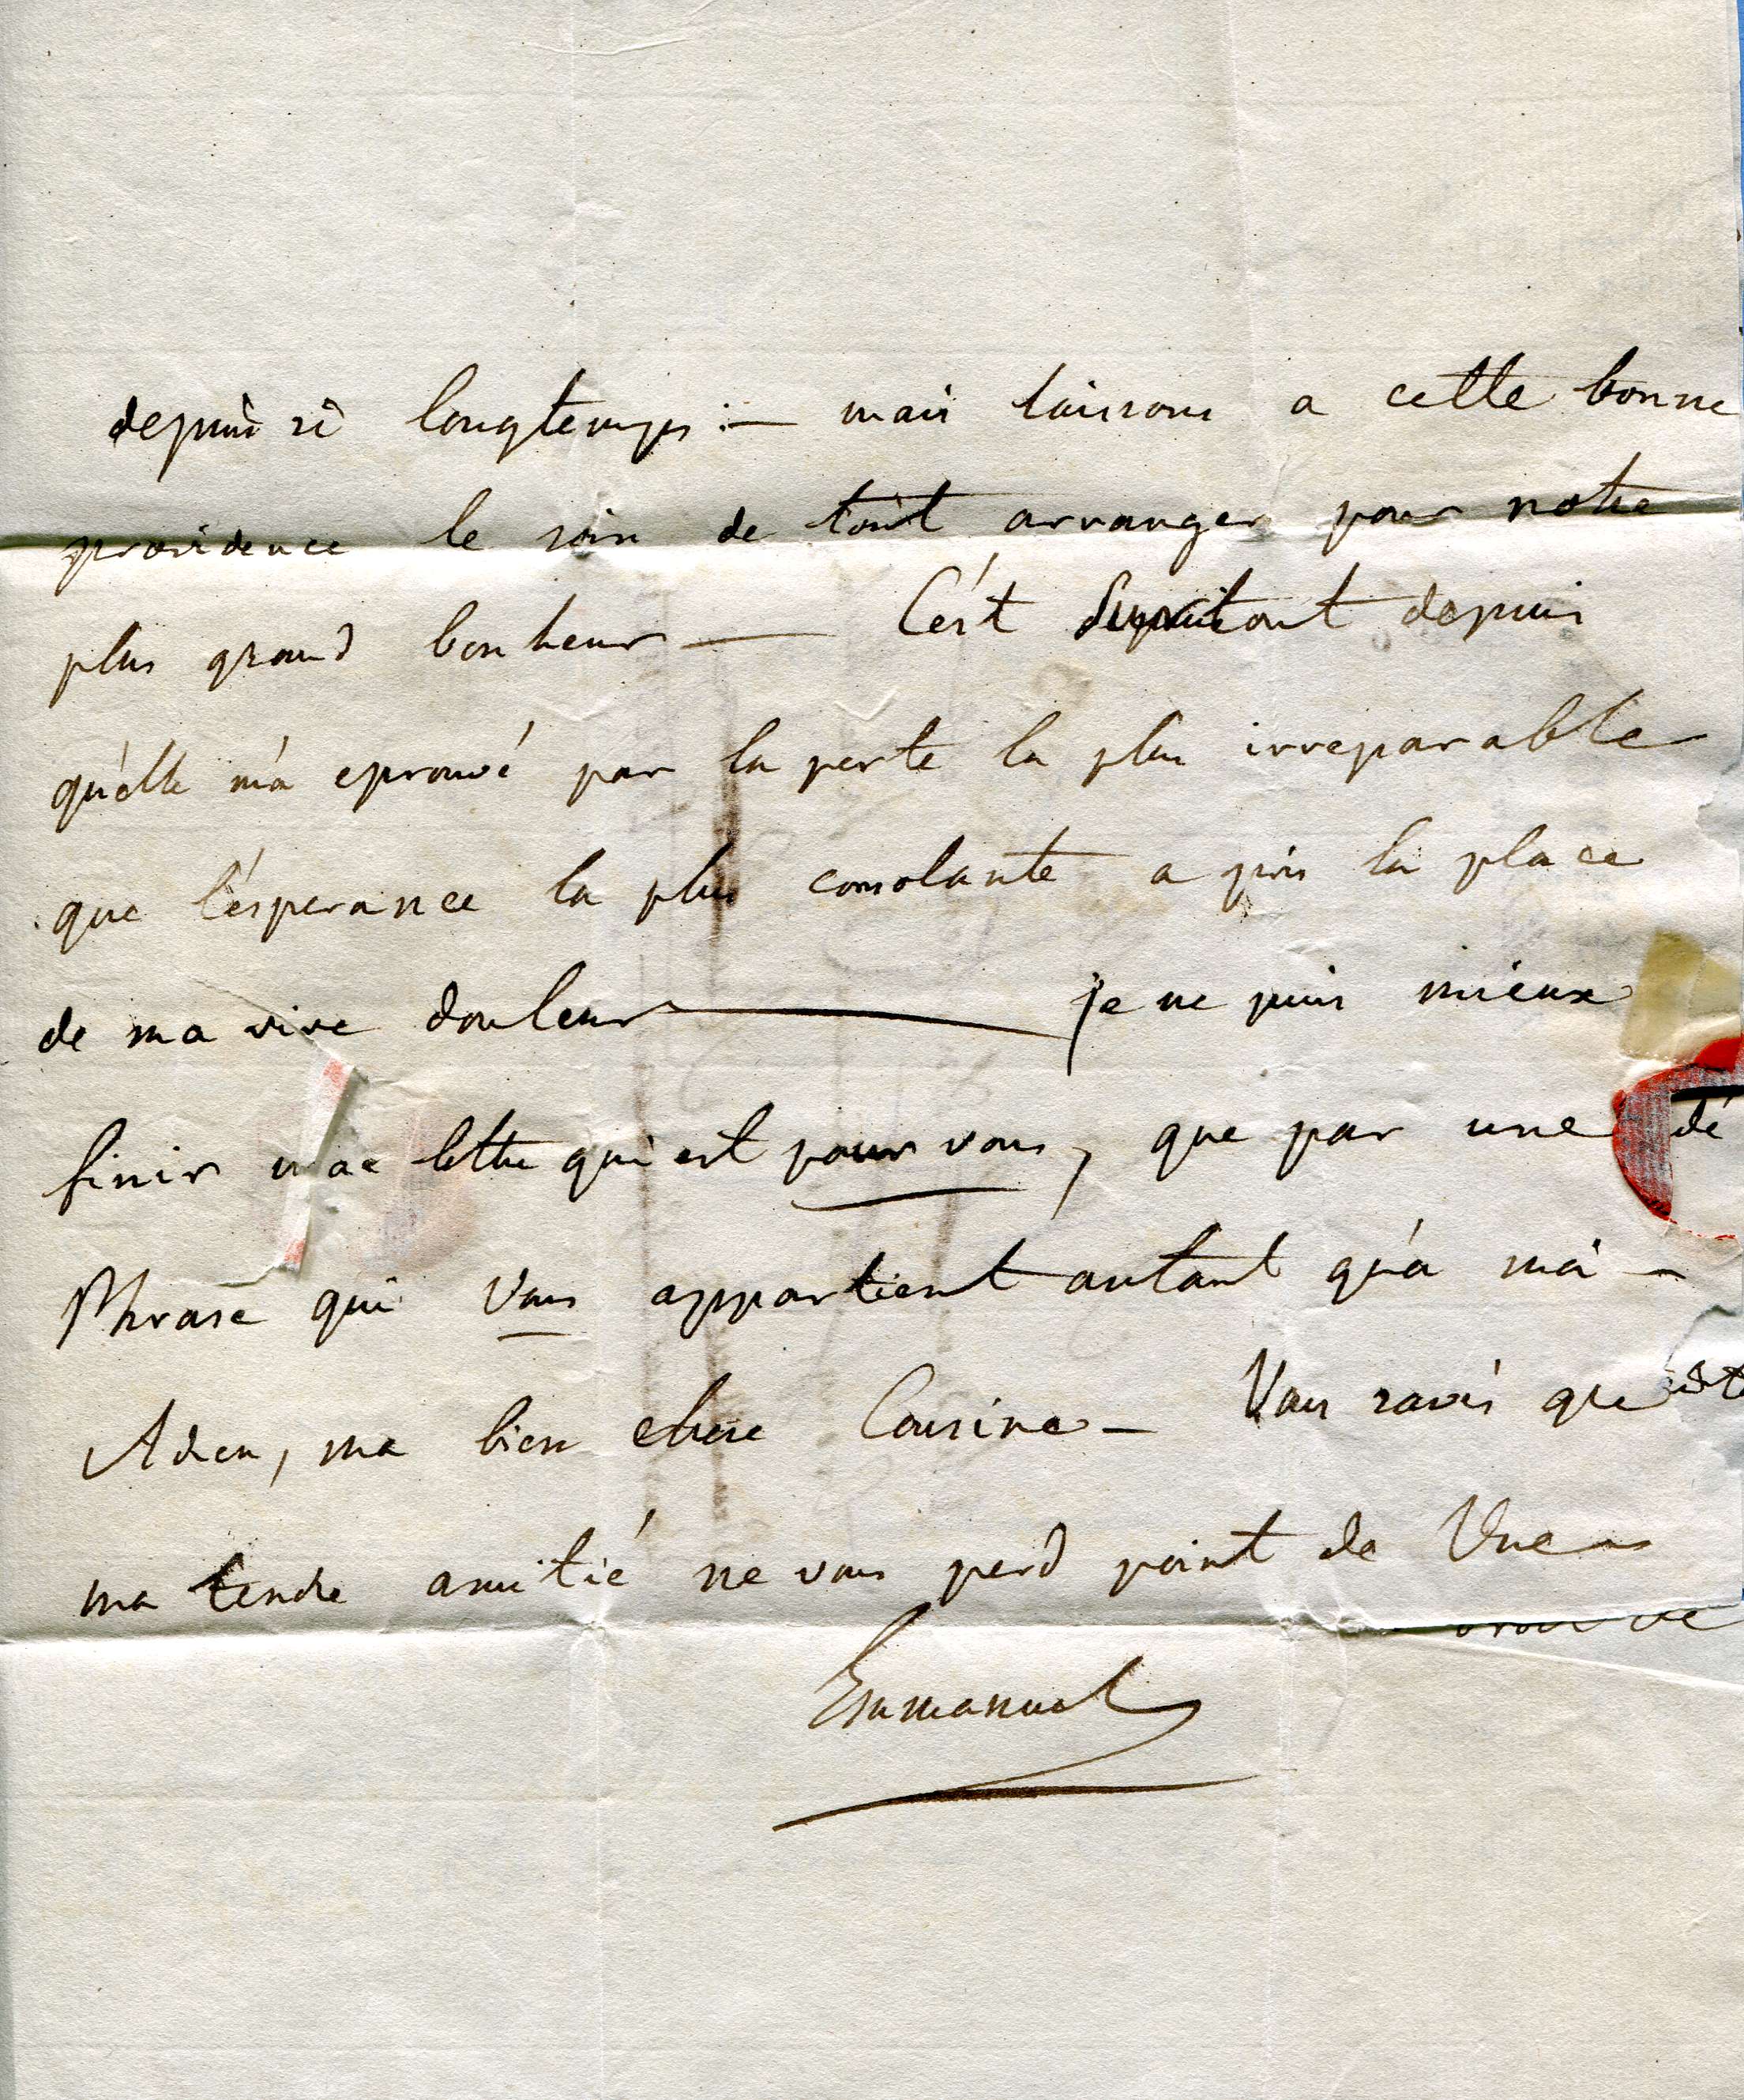 depuis si longtemps :— mais laissons a cette bonne
providence le soin de tout arranger pour notre
plus grand bonheur — C'ést surtout depuis
qu'elle m'a eprouvé par la perte la plus irreparable
que l'ésperance la plus consolante a pris la place
de ma vive douleur — je ne puis mieux
finir ma lettre qui est pour vous, que par une
Phrase qui vous appartient autant qu'a moi —
Adieu, ma bien chere Cousine — Vous savés que
ma tendre amitié ne vous perd point de Vue
Emmanuel